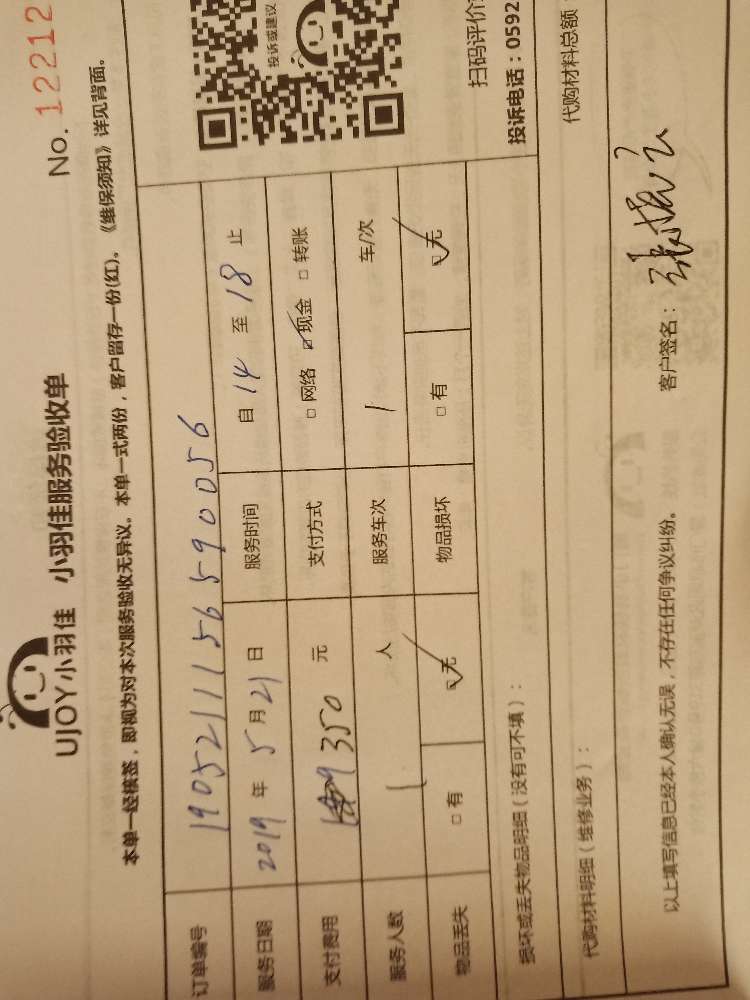 UJOY小羽佳 小羽佳服务验收单
No. 12212
本单一经核签，即视为对本次服务验收无异议。本单一式两份，客户留存一份(红)。《维保须知》详见背面。
投诉或建议
订单编号 19052111156590056
服务日期 2019 年 5 月 21 日 服务时间 自 14 至 18 止
支付费用 350 元 支付方式 □ 网络 ☑ 现金 □ 转账
服务人数 1 人 服务车次 1 车/次
物品丢失 □ 有 ☑ 无 物品损坏 □ 有 ☑ 无
损坏或丢失物品明细（没有可不填）：
扫码评价
投诉电话：0592
代购材料明细（维修业务）： 代购材料总额
以上填写信息已经本人确认无误，不存在任何争议纠纷。 客户签名：